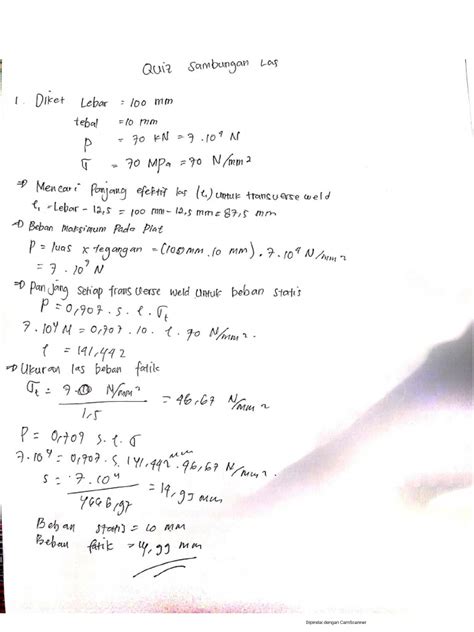 Quiz Sambungan Las
1. Diket Lebar = 100 mm
tebal = 10 mm
P = 70 kN = 7.10⁴ N
σ = 70 MPa = 70 N/mm2
=> Mencari Panjang efektif las (l₁) untuk transverse weld
l₁ = Lebar - 12,5 = 100 mm - 12,5 mm = 87,5 mm
=> Beban Maksimum Pada Plat
P = luas x tegangan = (100 mm . 10 mm) . 7.10⁴ N/mm2
= 7 . 10⁷ N
=> Panjang Setiap transverse weld untuk beban statis
P = 0,707 . s . l . σt
7.10⁴ N = 0,707 . 10 . l . 70 N/mm²
l = 141,442
=> Ukuran las beban fatik
σt = 70 N/mm² / 1,5 = 46,67 N/mm2
P = 0,707 s . l . σ
7.10⁴ = 0,707 . s . 141,442 mm . 46,67 N/mm2
s = 7.10⁴ / 4666,97 = 14,99 mm
Beban statis = 10 mm
Beban fatik = 14,99 mm
Dipindai dengan CamScanner